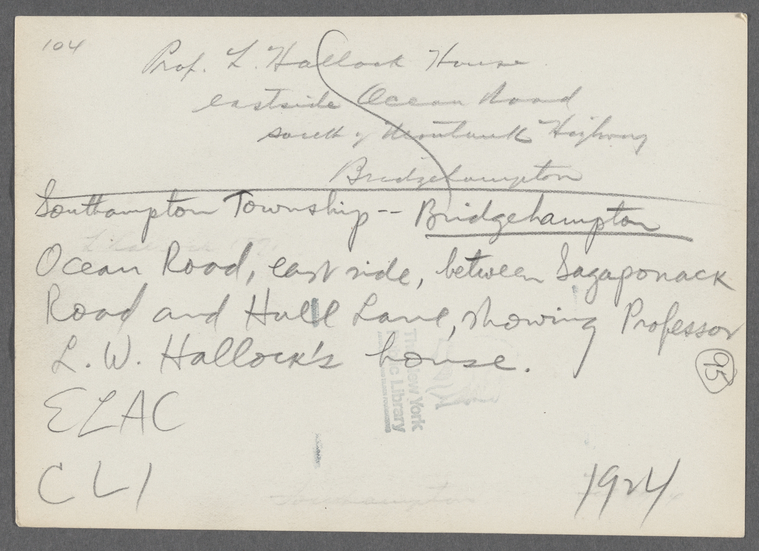 104
Prof. L. Hallock House
eastside Ocean Road
south of Montauk Highway
Bridgehampton
Southampton Township -- Bridgehampton
Ocean Road, east side, between Sagaponack
Road and Hull Lane, showing Professor
L. W. Hallock's house.
95
ELAC
CLI
1924
The New York
Public Library